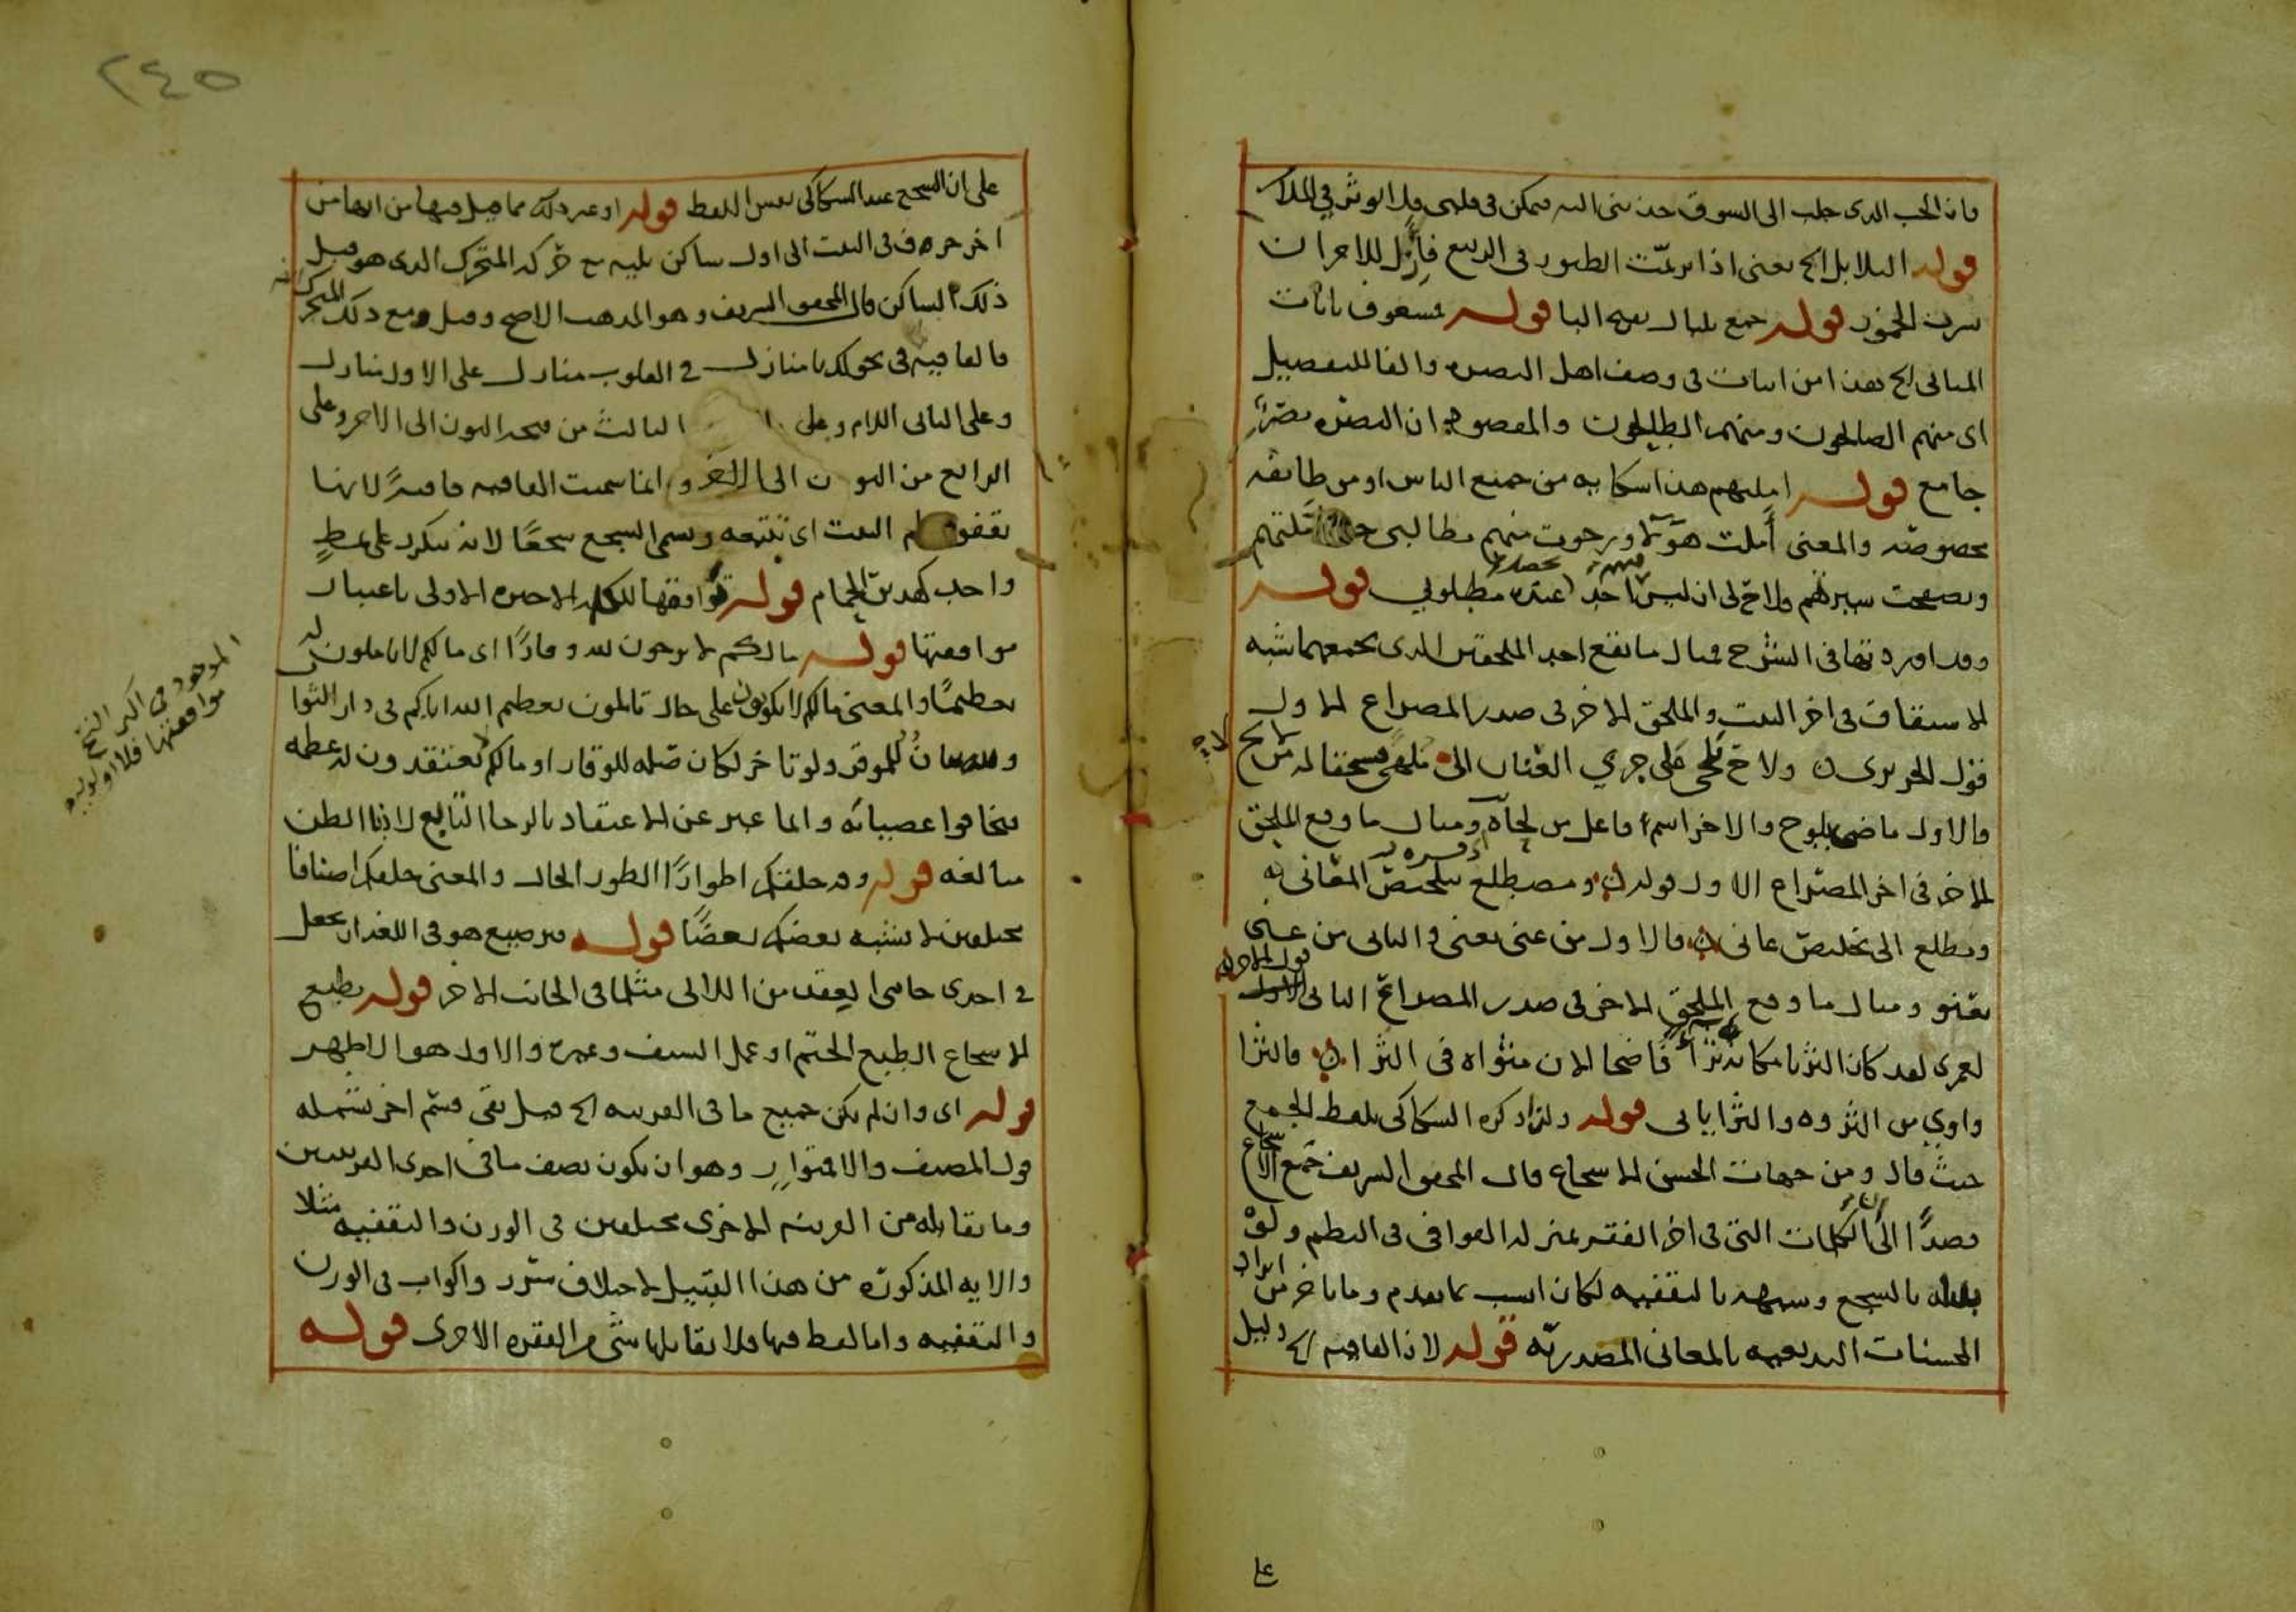 فان الحب الذى جلب الى السوق حذ شى اليه فيمكن فى قلبى قبل الوثر فى الملا
قوله البلابل الخ يعنى اذا ترنمت الطيور فى الربيع فازل للاحزان
شرب الخمور قوله جمع بلبال بفتح البا قوله فمشغوف بايات
المثانى الخ هذا من ابيات فى وصف اهل البصره والفا للتفصيل
اى منهم الصالحون ومنهم الطالحون والمقصود ان البصره مصر
جامع قوله املتهم هذا شكايه من جميع الناس او من طائفه
مخصوصه والمعنى أملت هؤلاء ورجوت منهم مطالبى حتى تاملتهم
وتصفحت سيرتهم ولاح لى ان ليس احد عنده مطلوبي قوله
وقد اوردتها فى الشرح مثال ما يقع احد الملحقين الذى يجمعهما شبه
الاشتقاق فى اخر البيت والملحق الاخر فى صدر المصراع الاول
قول الحريرى ولاح يلحى على جري العنان الى ملهى فسحقا له من لايح
فالاول ماضى يلوح والاخر اسم فاعل من لحاه ومثال ما وقع الملحق
الاخر فى اخر المصراع الاول قوله ومضطلع بتلخيص المعانى
ومطلع الى تخليص عانى فالاول من عنى يعنى والثانى من عنى
يعنو ومثال ما وقع الملحق الاخر فى صدر المصراع الثانى قول الاخر
لعمرى لقد كان الثريا مكانه ثراء فاضحا الان مثواه فى الثرا فالثرا
واوي من الثروه والثرا يائى قوله ولذا ذكره السكاكى بلفظ الجمع
حيث قال ومن جهات الحسن الاسجاع قال المحقق الشريف جمع الاسجاع
قصدا الى الكلمات التى فى اخر الفقر بمنزله القوافى فى النظم ولو
بالسجع وشبهه بالتقفيه لكان انسب بما تقدم وما تاخر من ايراد
المحسنات البديعيه بالمعانى المصدريه قوله لان القافيه الخ دليل
على
٢٤٥
على ان السجع عند السكاكى نفس اللفظ قوله او غير ذلك مما قيل فيها من انها من
اخر حرف فى البيت الى اول ساكن يليه مع حركه المتحرك الذى هو قبل
ذلك الساكن قال المحقق الشريف وهو المذهب الاصح وقيل مع ذلك المتحرك
فالقافيه فى نحو لك يا منازل فى القلوب منازل على الاول نازل
وعلى الثانى اللام وعلى الثالث من فتحه النون الى الاخر وعلى
الرابع من النون الى الاخر وانما سميت القافيه قافيةً لانها
تقفو البيت اى تتبعه وسمى السجع سجعًا لانه يتكرر على نمط
واحد كهدير الحمام قوله توافقها للكلمه الاخيره الاولى باعتبار
موافقتها قوله مالكم لا ترجون لله وقارًا اى مالكم لا تاملون له
تعظيمًا والمعنى مالكم لا تكونون على حال تاملون تعظيم الله اياكم فى دار الثوا
ولله بيان للموقر ولو تاخر لكان صله للوقار او مالكم لا تعتقدون له عظمه
فتخافوا عصيانه وانما عبر عن الاعتقاد بالرجا التابع لادنى الظن
مبالغه قوله وقد خلقكم اطوارًا الطور الحال والمعنى خلقكم اصنافا
مختلفين لا يشبه بعضكم بعضًا قوله ترصيع هو فى اللغه ان يجعل
فى احدى جانبى العقد من اللالى مثل ما فى الجانب الاخر قوله يطبع
الاسجاع الطبع الختم او عمل السيف وغيره والاول هو الاظهر
قوله اى وان لم يكن جميع ما فى القرينه الخ قيل بقى قسم اخر يشمله
قول المصنف والا فمتواز وهو ان يكون نصف ما فى احدى القرينتين
وما يقابله من القرينه الاخرى مختلفين فى الوزن والتقفيه مثلا
والايه المذكوره من هذا القبيل لاختلاف سرر واكواب فى الوزن
والتقفيه واما لفظ فيها فلا يقابلها شى من الفقره الاخرى قوله
الموجود فى اكثر النسخ
موافقتها فلا اولويه